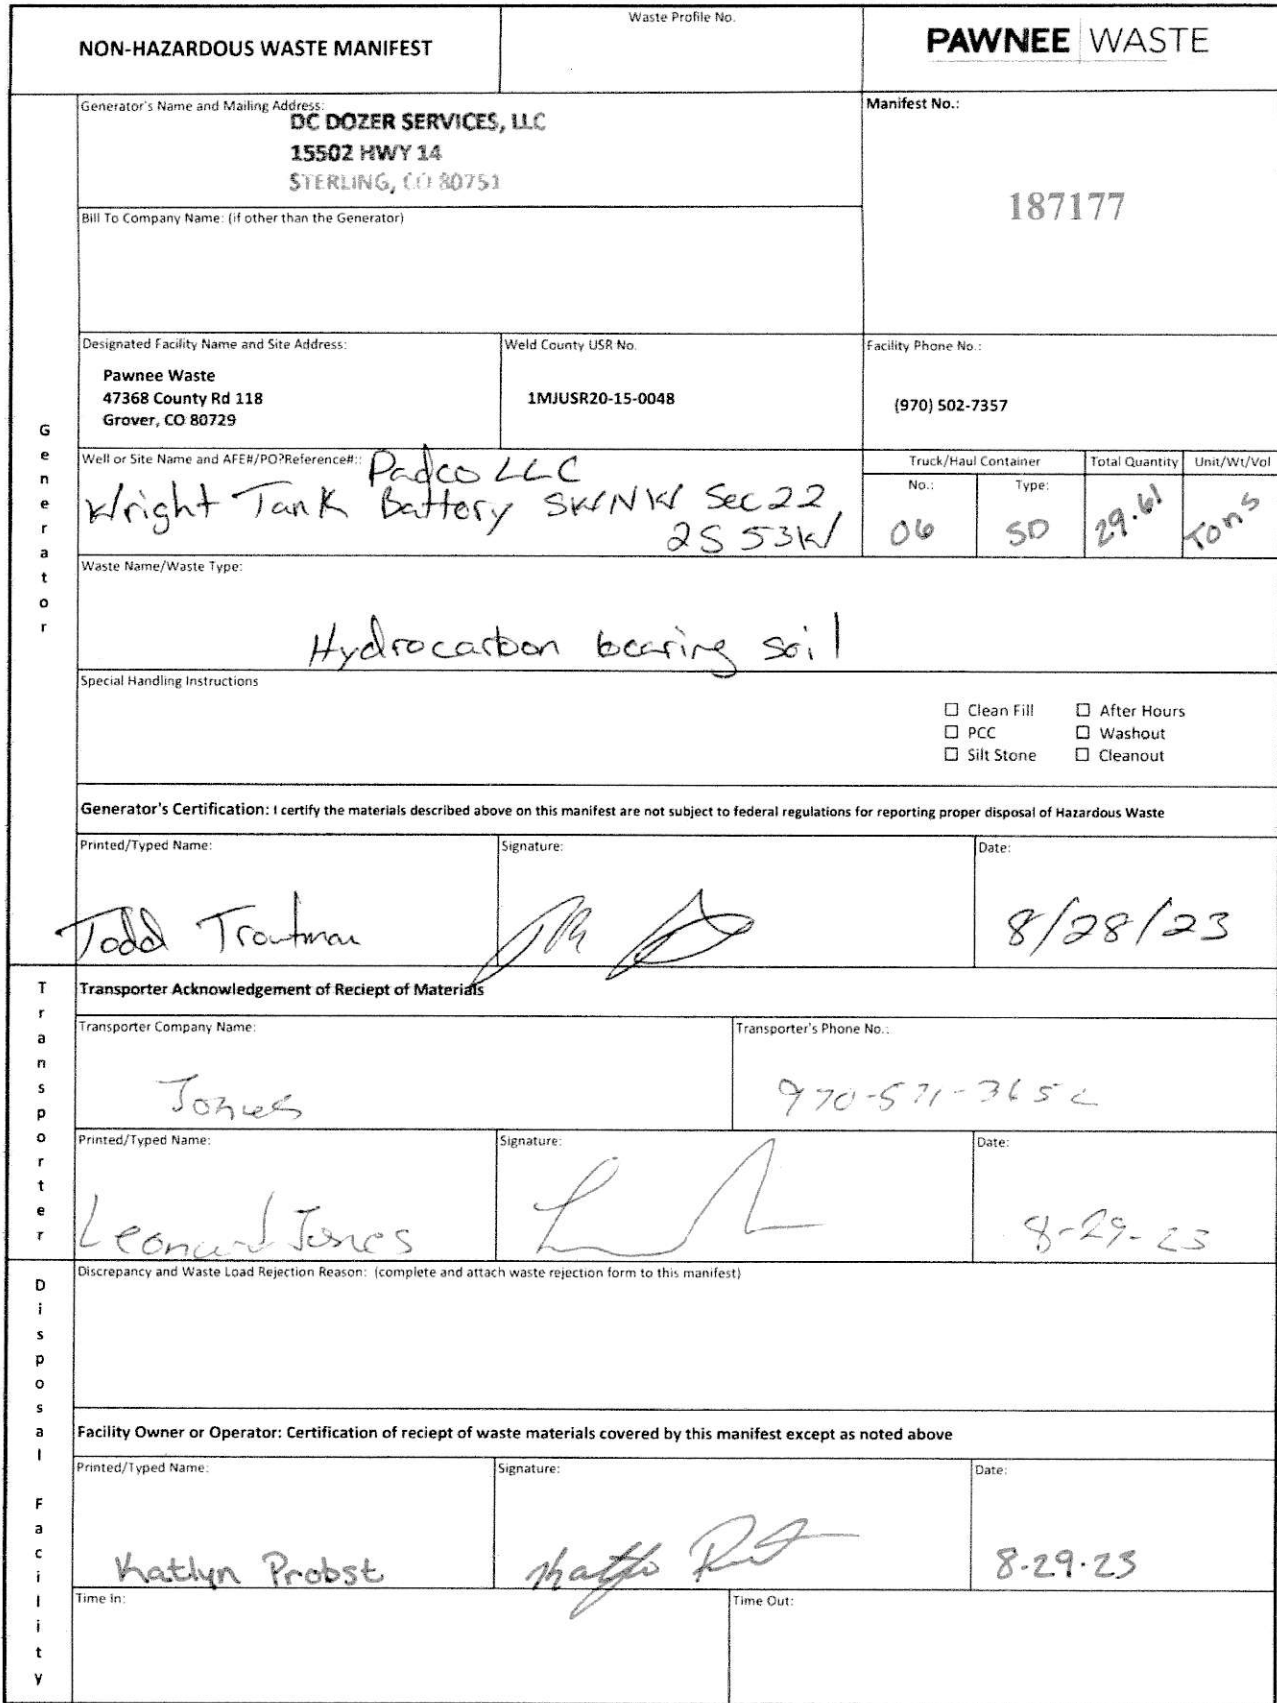 NON-HAZARDOUS WASTE MANIFEST
Waste Profile No.
PAWNEE WASTE
Generator
Generator's Name and Mailing Address:
DC DOZER SERVICES, LLC
15502 HWY 14
STERLING, CO 80751
Manifest No.:
187177
Bill To Company Name: (if other than the Generator)
Designated Facility Name and Site Address:
Pawnee Waste
47368 County Rd 118
Grover, CO 80729
Weld County USR No.
1MJUSR20-15-0048
Facility Phone No.:
(970) 502-7357
Well or Site Name and AFE#/PO?Reference#::
Padco LLC
Wright Tank Battery SWNW Sec 22
2S 53W
Truck/Haul Container
No.:
06
Type:
SD
Total Quantity
29.61
Unit/Wt/Vol
Tons
Waste Name/Waste Type:
Hydrocarbon bearing soil
Special Handling Instructions
☐ Clean Fill ☐ After Hours
☐ PCC ☐ Washout
☐ Silt Stone ☐ Cleanout
Generator's Certification: I certify the materials described above on this manifest are not subject to federal regulations for reporting proper disposal of Hazardous Waste
Printed/Typed Name:
Todd Troutman
Signature:
Date:
8/28/23
Transporter
Transporter Acknowledgement of Reciept of Materials
Transporter Company Name:
Jones
Transporter's Phone No.:
Printed/Typed Name:
Leonard Jones
Signature:
Date:
8-29-23
Disposal Facility
Discrepancy and Waste Load Rejection Reason: (complete and attach waste rejection form to this manifest)
Facility Owner or Operator: Certification of reciept of waste materials covered by this manifest except as noted above
Printed/Typed Name:
Katlyn Probst
Signature:
Date:
8-29-23
Time In:
Time Out: